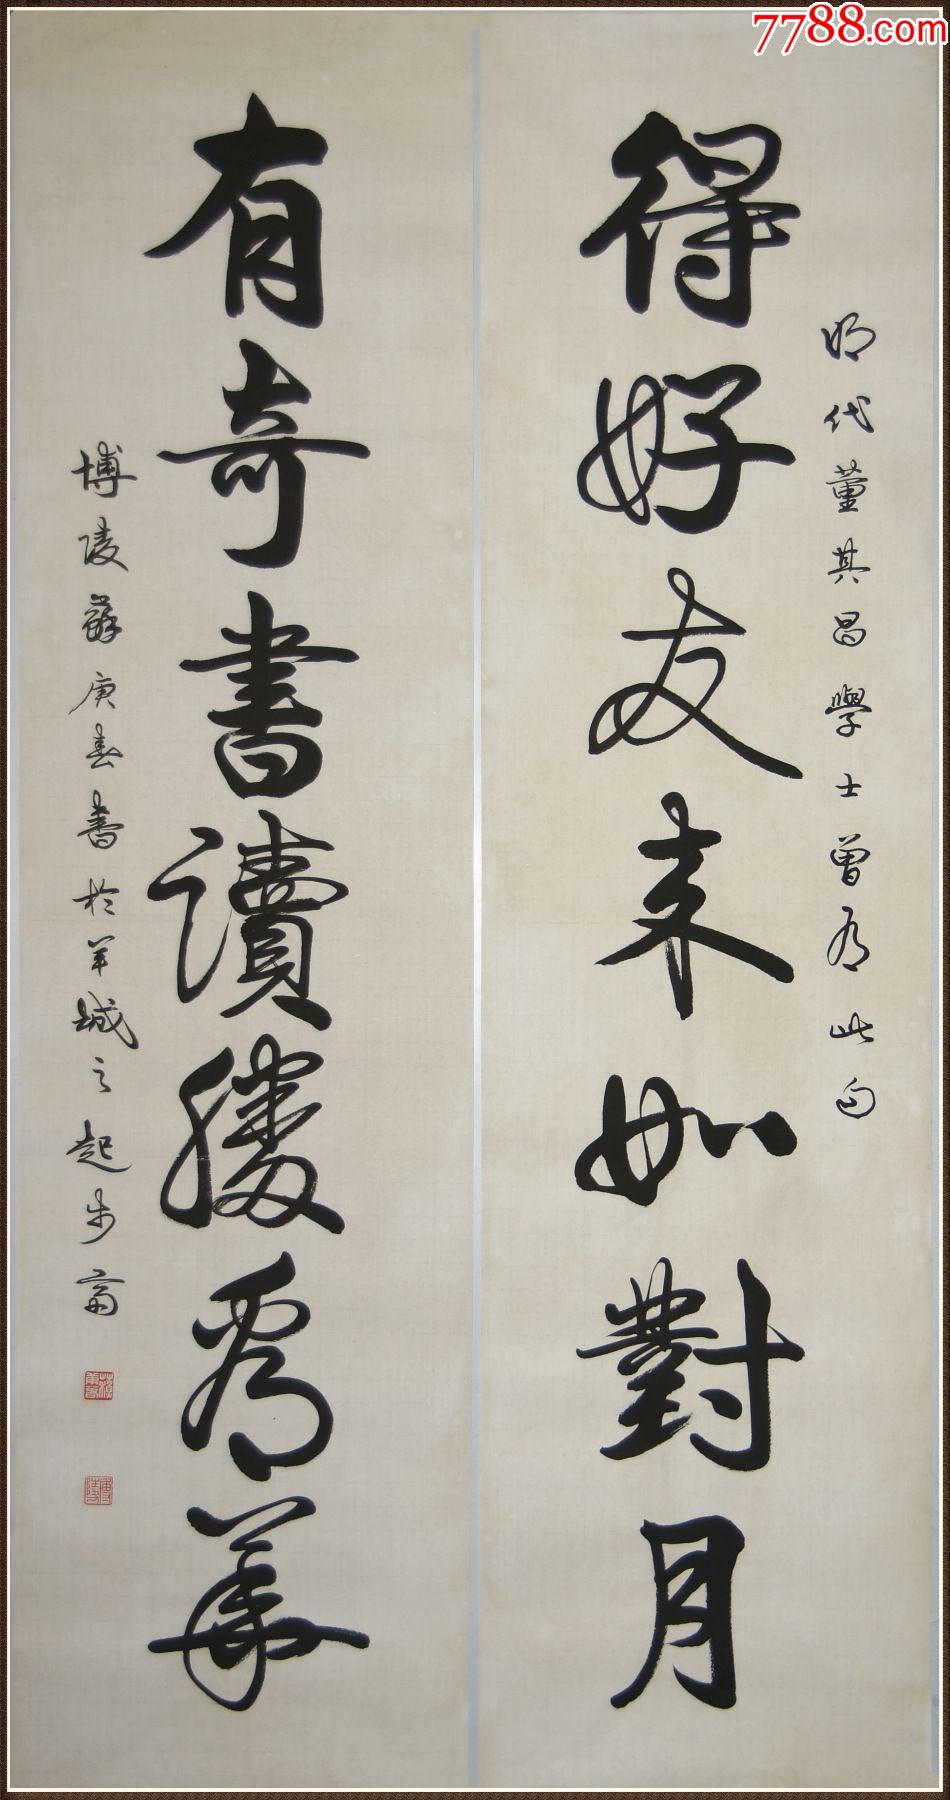 7788.com
明代董其昌學士曾有此句
得好友来如對月
有奇書讀勝看華
博陵蘇庚春書於羊城之起步齋